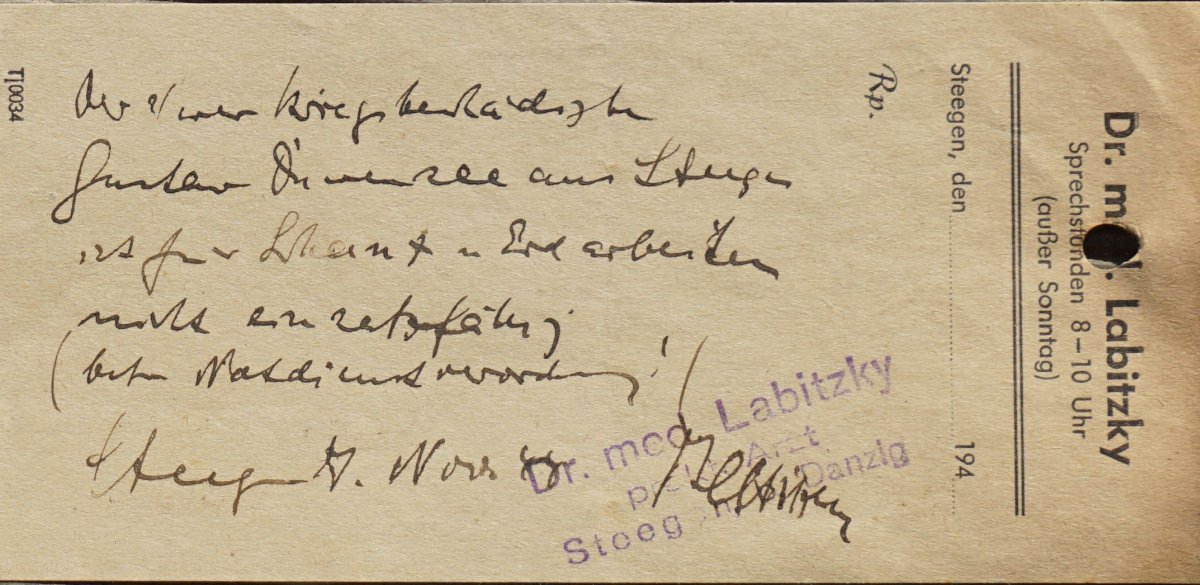 Dr. med. Labitzky
Sprechstunden 8–10 Uhr
(außer Sonntag)
Steegen, den 194
Rp.
Der Kriegsbeschädigte
Gustav aus Steegen
ist für u Erdarbeiten
nicht einsatzfähig
(betr Notdienstverordnung!)
Steegen Nov
Dr. med. Labitzky
Arzt
Steeg Danzig
Tj0034